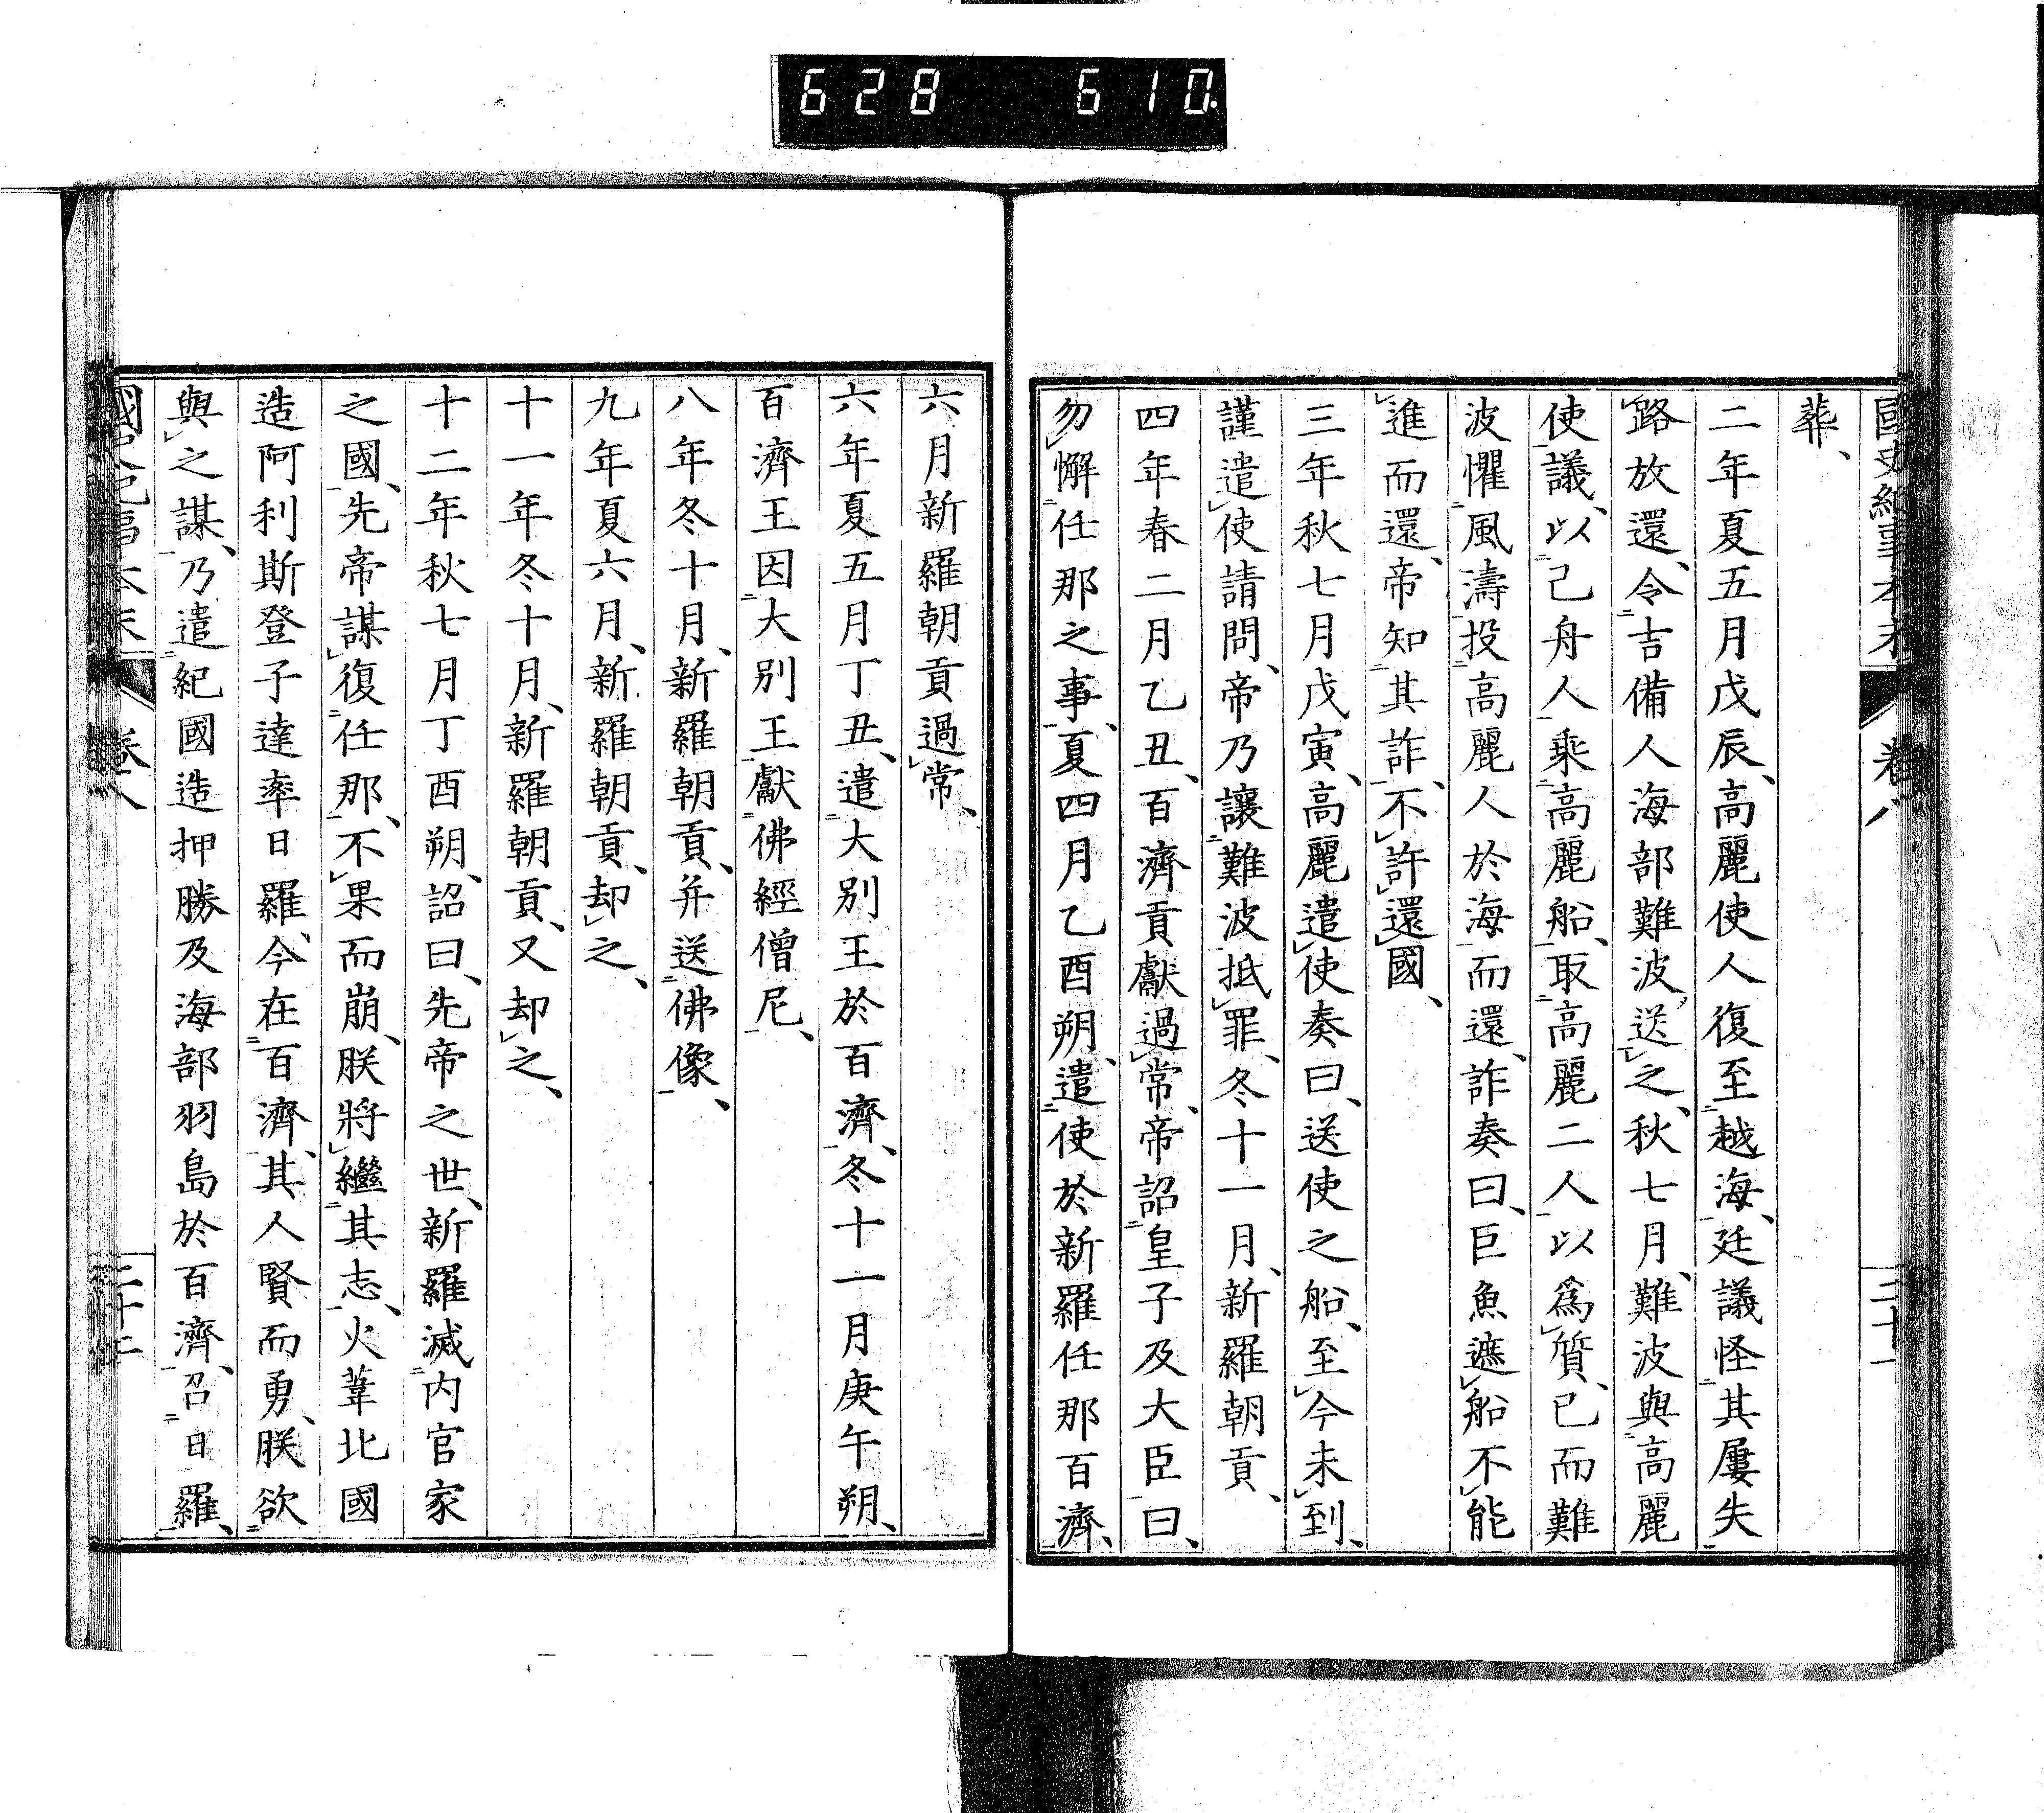 628 610.
國史紀事本末 卷八 二十一
葬、
二年夏五月戊辰、高麗使人復至越海、廷議怪其屢失
路放還、令吉備人海部難波、送之、秋七月、難波與高麗
使議、以己舟人乘高麗船、取高麗二人以爲質、已而難
波懼風濤、投高麗人於海而還、詐奏曰、巨魚遮船不能
進而還、帝知其詐、不許還國、
三年秋七月戊寅、高麗遣使奏曰、送使之船、至今未到、
謹遣使請問、帝乃讓難波抵罪、冬十一月、新羅朝貢、
四年春二月乙丑、百濟貢獻過常、帝詔皇子及大臣曰、
勿懈任那之事、夏四月乙酉朔、遣使於新羅任那百濟、
六月新羅朝貢過常、
六年夏五月丁丑、遣大別王於百濟、冬十一月庚午朔、
百濟王因大別王獻佛經僧尼、
八年冬十月、新羅朝貢、并送佛像、
九年夏六月、新羅朝貢、却之、
十一年冬十月、新羅朝貢、又却之、
十二年秋七月丁酉朔、詔曰、先帝之世、新羅滅内官家
之國、先帝謀復任那、不果而崩、朕將繼其志、火葦北國
造阿利斯登子達率日羅、今在百濟、其人賢而勇、朕欲
與之謀、乃遣紀國造押勝及海部羽島於百濟、召日羅、
國史紀事本末 卷八 二十二